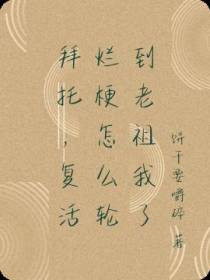 拜托，复活
烂梗怎么轮
到老祖我了
饼干要嚼碎 著